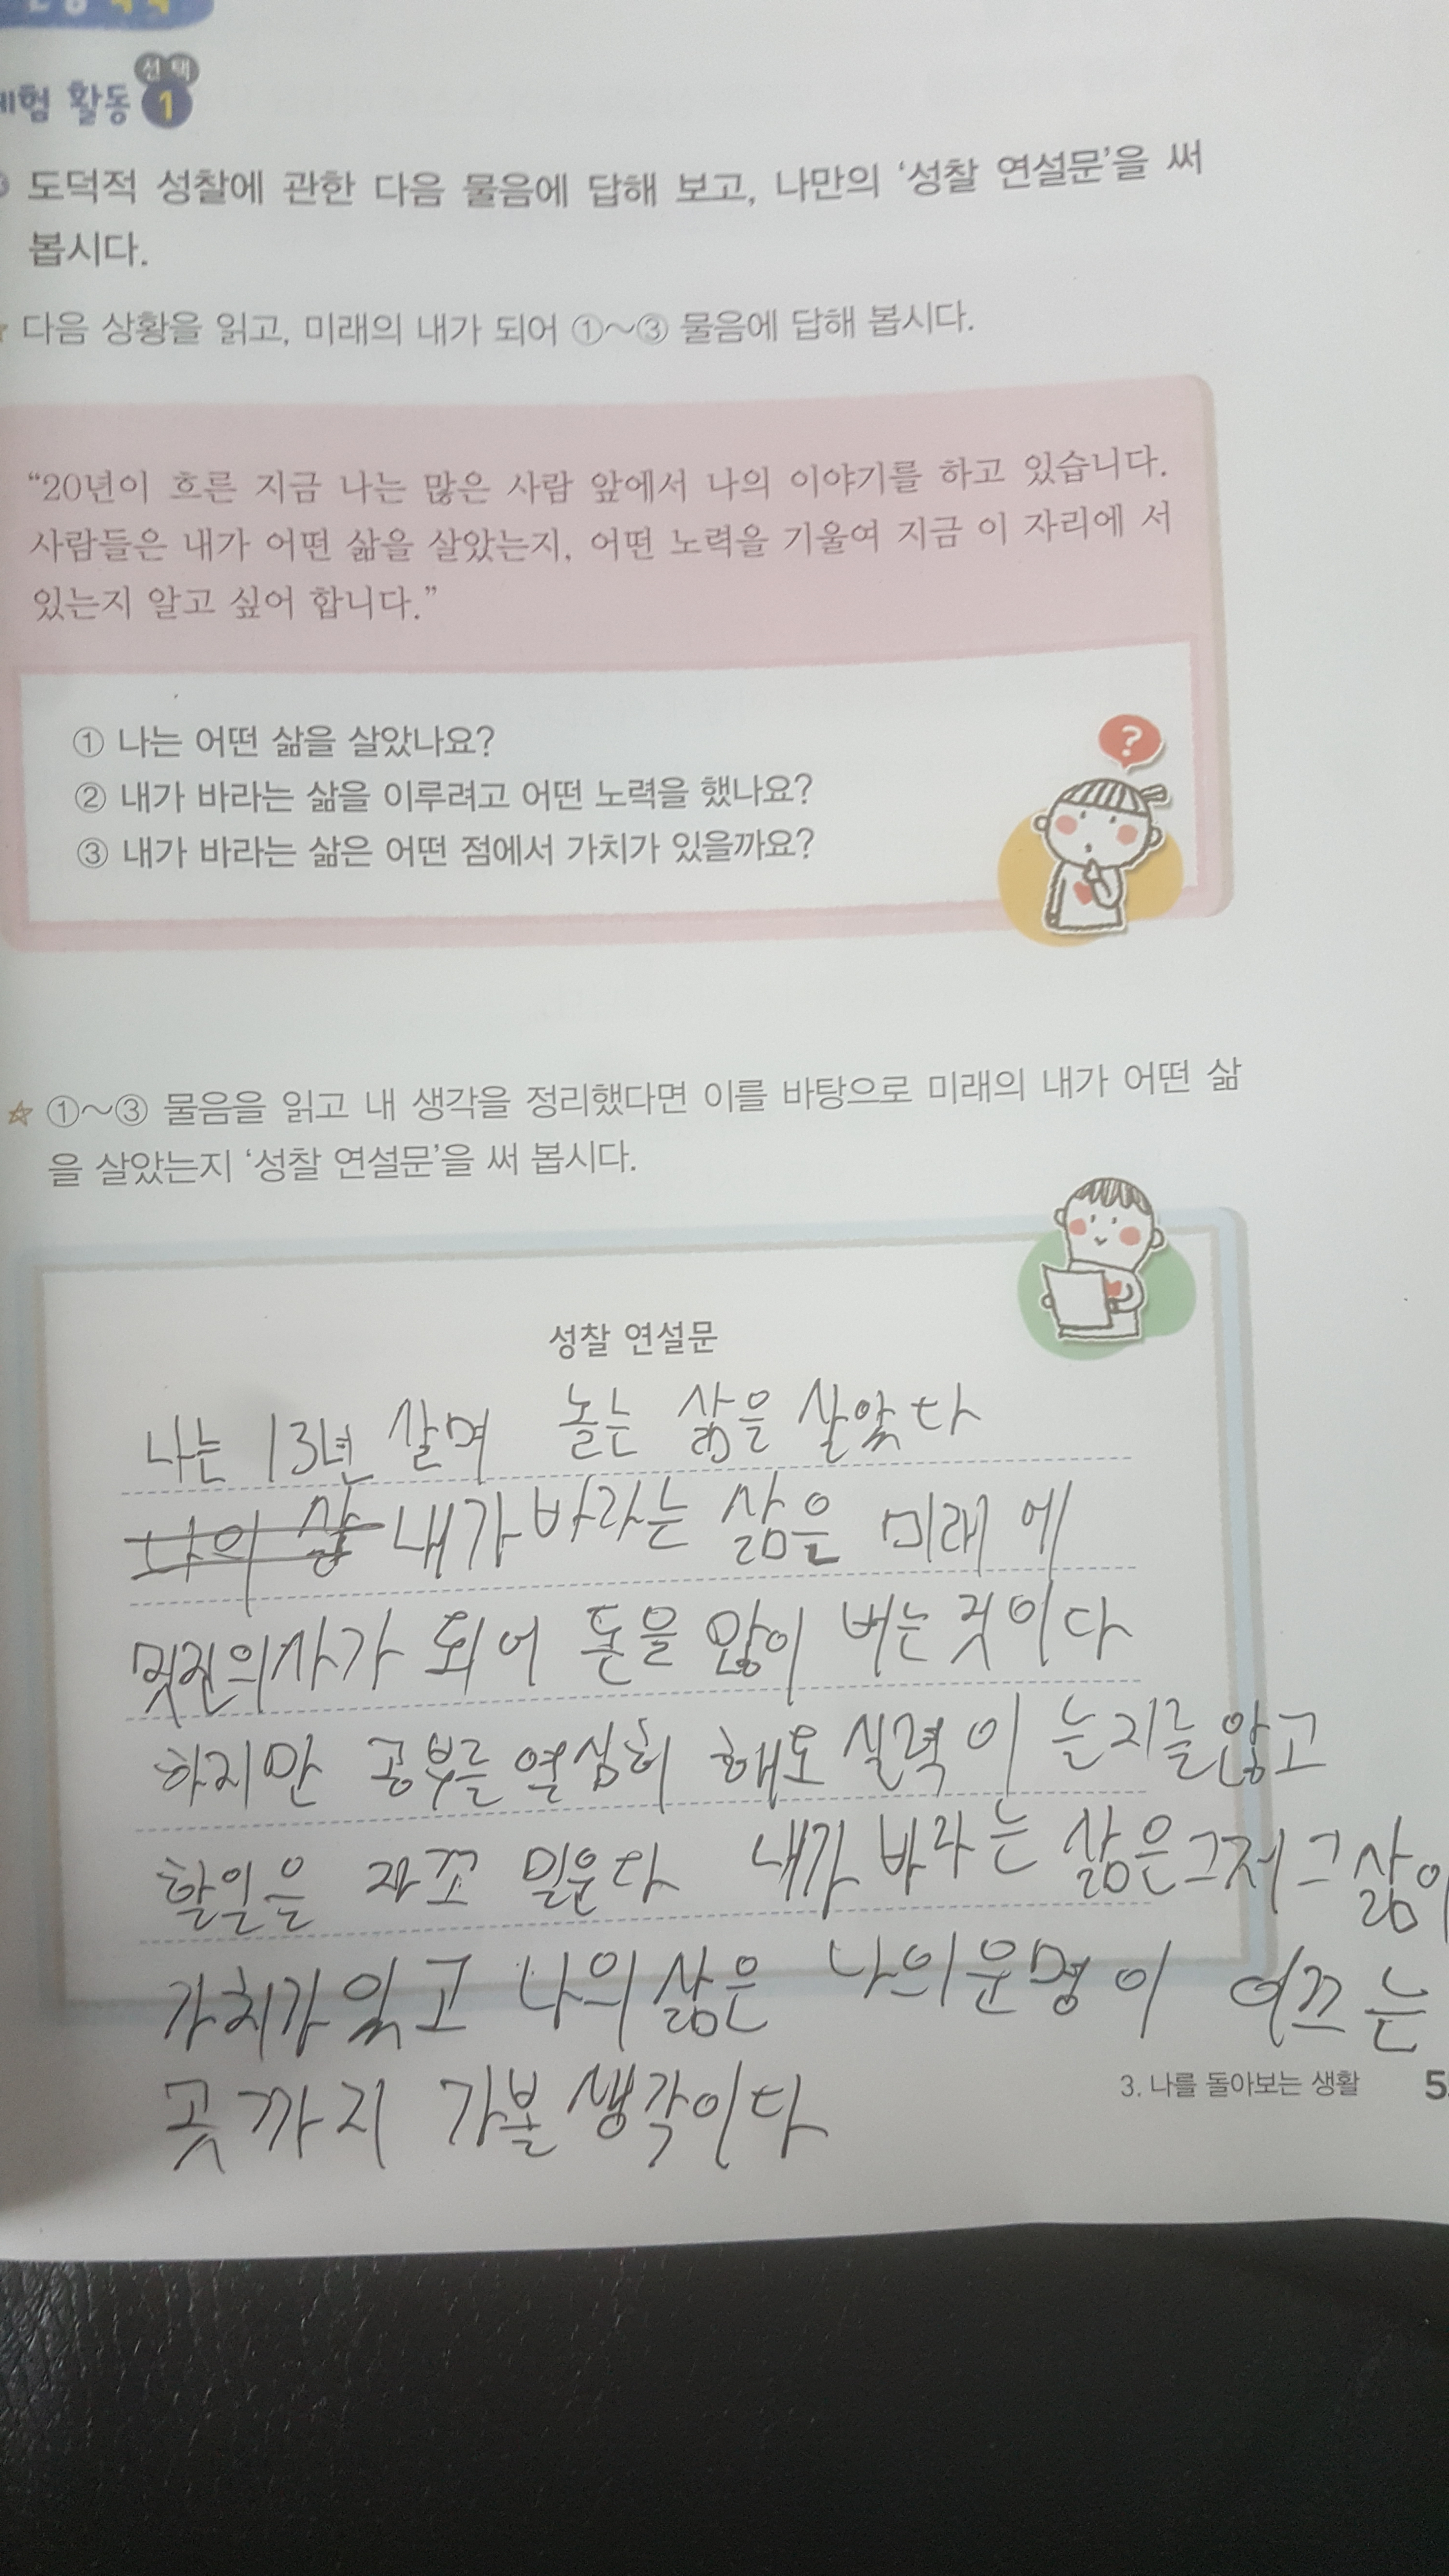 선택
체험 활동 1
도덕적 성찰에 관한 다음 물음에 답해 보고, 나만의 ‘성찰 연설문’을 써
봅시다.
다음 상황을 읽고, 미래의 내가 되어 ①~③ 물음에 답해 봅시다.
“20년이 흐른 지금 나는 많은 사람 앞에서 나의 이야기를 하고 있습니다.
사람들은 내가 어떤 삶을 살았는지, 어떤 노력을 기울여 지금 이 자리에 서
있는지 알고 싶어 합니다.”
?
① 나는 어떤 삶을 살았나요?
② 내가 바라는 삶을 이루려고 어떤 노력을 했나요?
③ 내가 바라는 삶은 어떤 점에서 가치가 있을까요?
☆ ①~③ 물음을 읽고 내 생각을 정리했다면 이를 바탕으로 미래의 내가 어떤 삶
을 살았는지 ‘성찰 연설문’을 써 봅시다.
성찰 연설문
나는 13년 살며 놀는 삶을 살았다
나의 삶 내가 바라는 삶은 미래에
멋진의사가 되어 돈을 많이 버는것이다
하지만 공부를 열심히 해도 실력이 늘지를않고
할일을 자꼬 밀운다 내가 바라는 삶은그저그삶이
가치가있고 나의삶은 나의운명이 이끄는
곳까지 가볼생각이다
3. 나를 돌아보는 생활 5